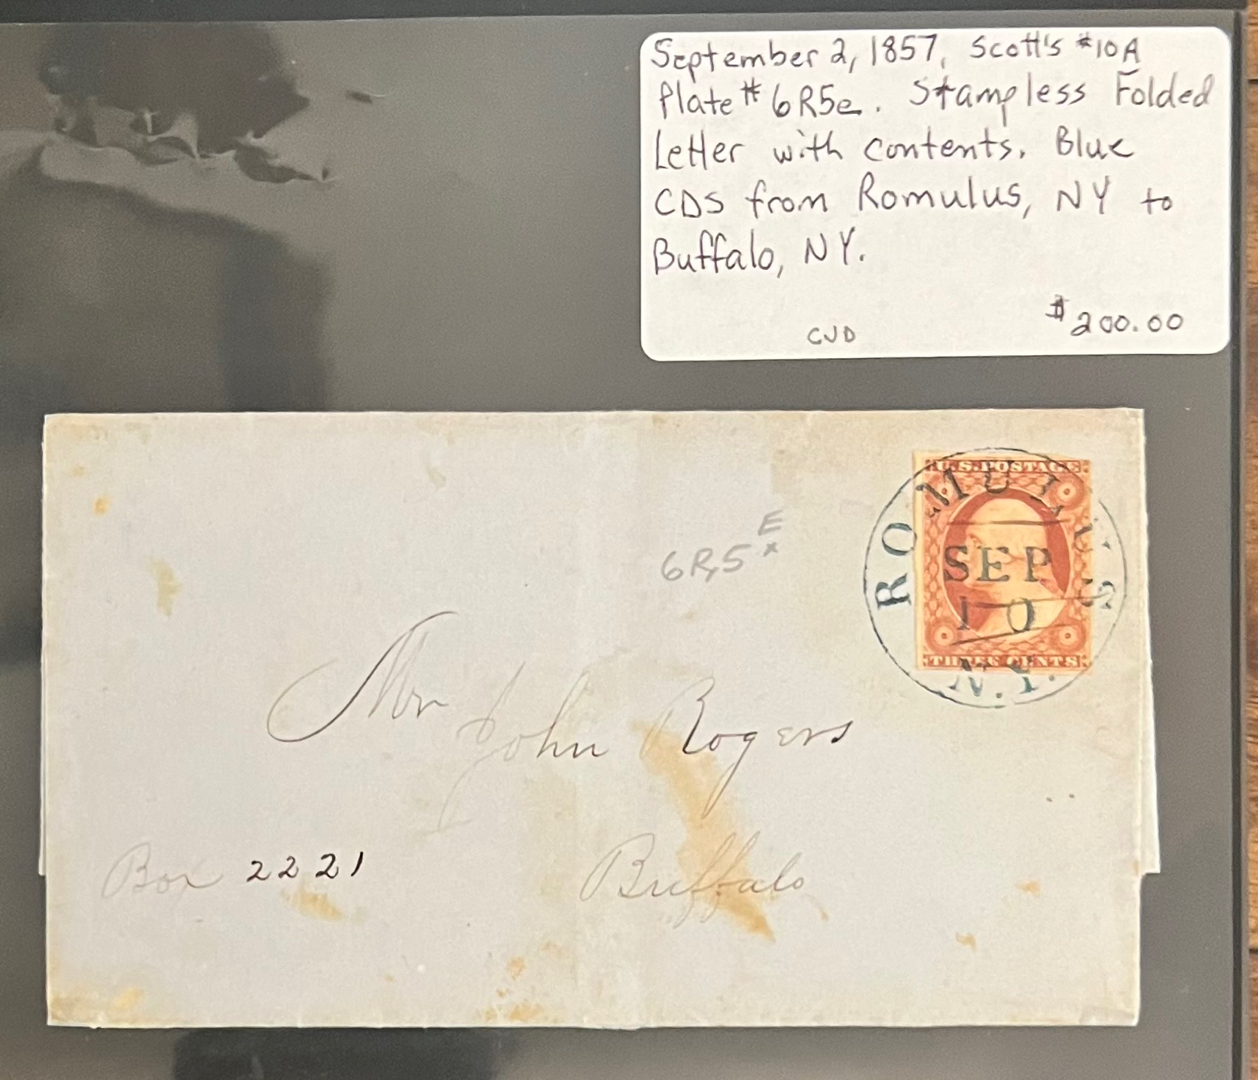 September 2, 1857, Scott's #10A
Plate # 6R5e. Stampless Folded
Letter with contents. Blue
CDS from Romulus, NY to
Buffalo, NY.
$200.00
CJD
U.S. POSTAGE
ROMULUS
SEP
10
N.Y.
THREE CENTS
E
6R5 x
Mr
John Rogers
Box 2221
Buffalo